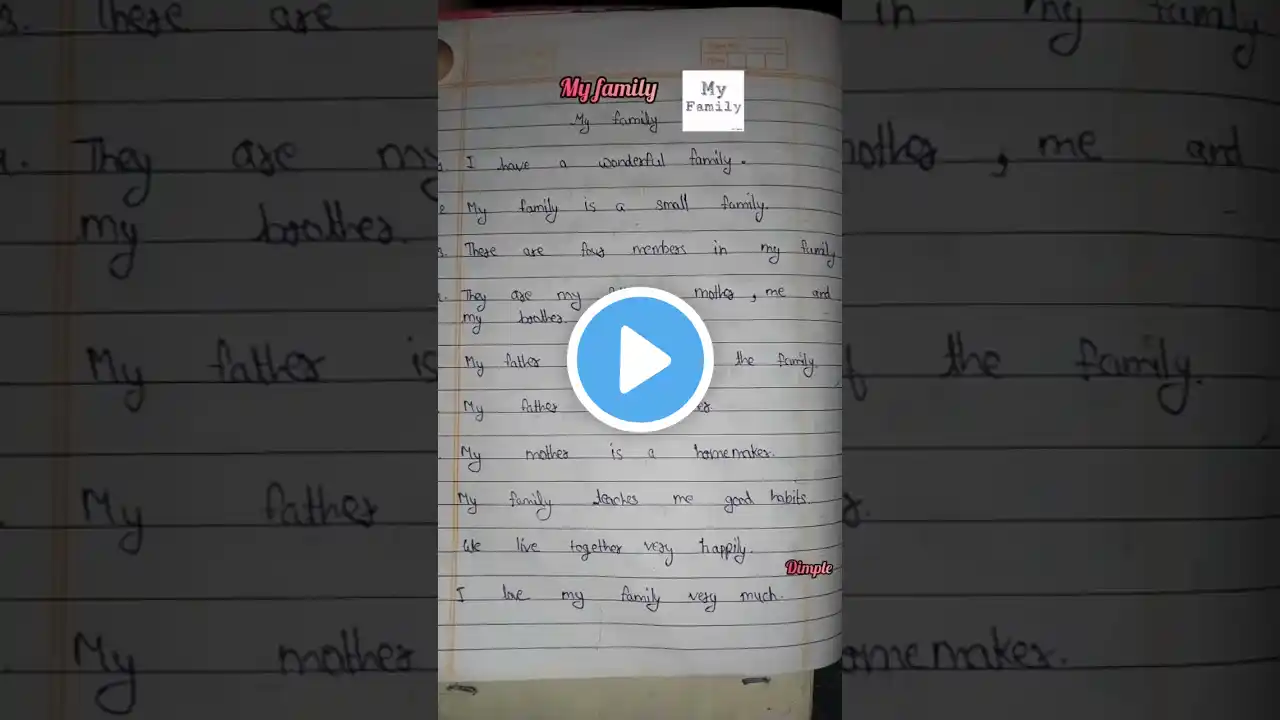 My family
My
Family
My family
I have a wonderful family.
My family is a small family.
3. There are four members in my family
They are my mother , me and
my brother.
My father the family.
My father
My mother is a homemaker.
My family teaches me good habits.
We live together very happily.
Dimple
I love my family very much.